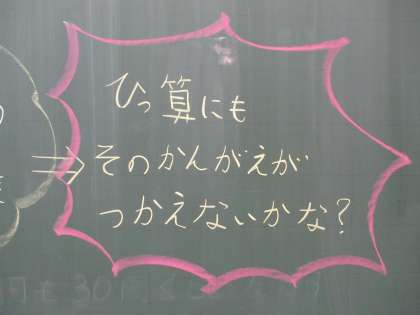 ひっ算にも
⇒そのかんがえが
つかえないかな?